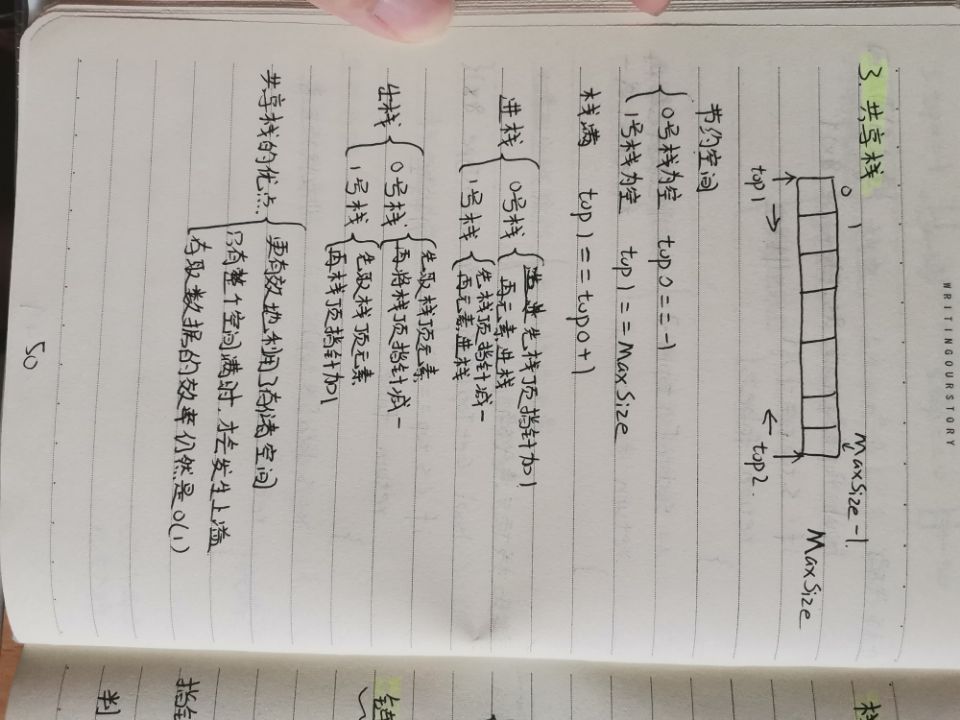 WRITINGOURSTORY
3. 共享栈
0 1 MaxSize-1.
MaxSize
top1 → ← top2.
节约空间
0号栈为空 top0==-1
1号栈为空 top1==MaxSize
栈满 top1==top0+1
进栈
0号栈
进先栈顶指针加1
再元素进栈
1号栈
先栈顶指针减一
再元素进栈
出栈
0号栈
先取栈顶元素
再将栈顶指针减一
1号栈
先取栈顶元素
再栈顶指针加1
共享栈的优点.
更有效地利用了存储空间
只有整个空间满时,才会发生上溢
存取数据的效率仍然是O(1)
50
栈
链
指
判